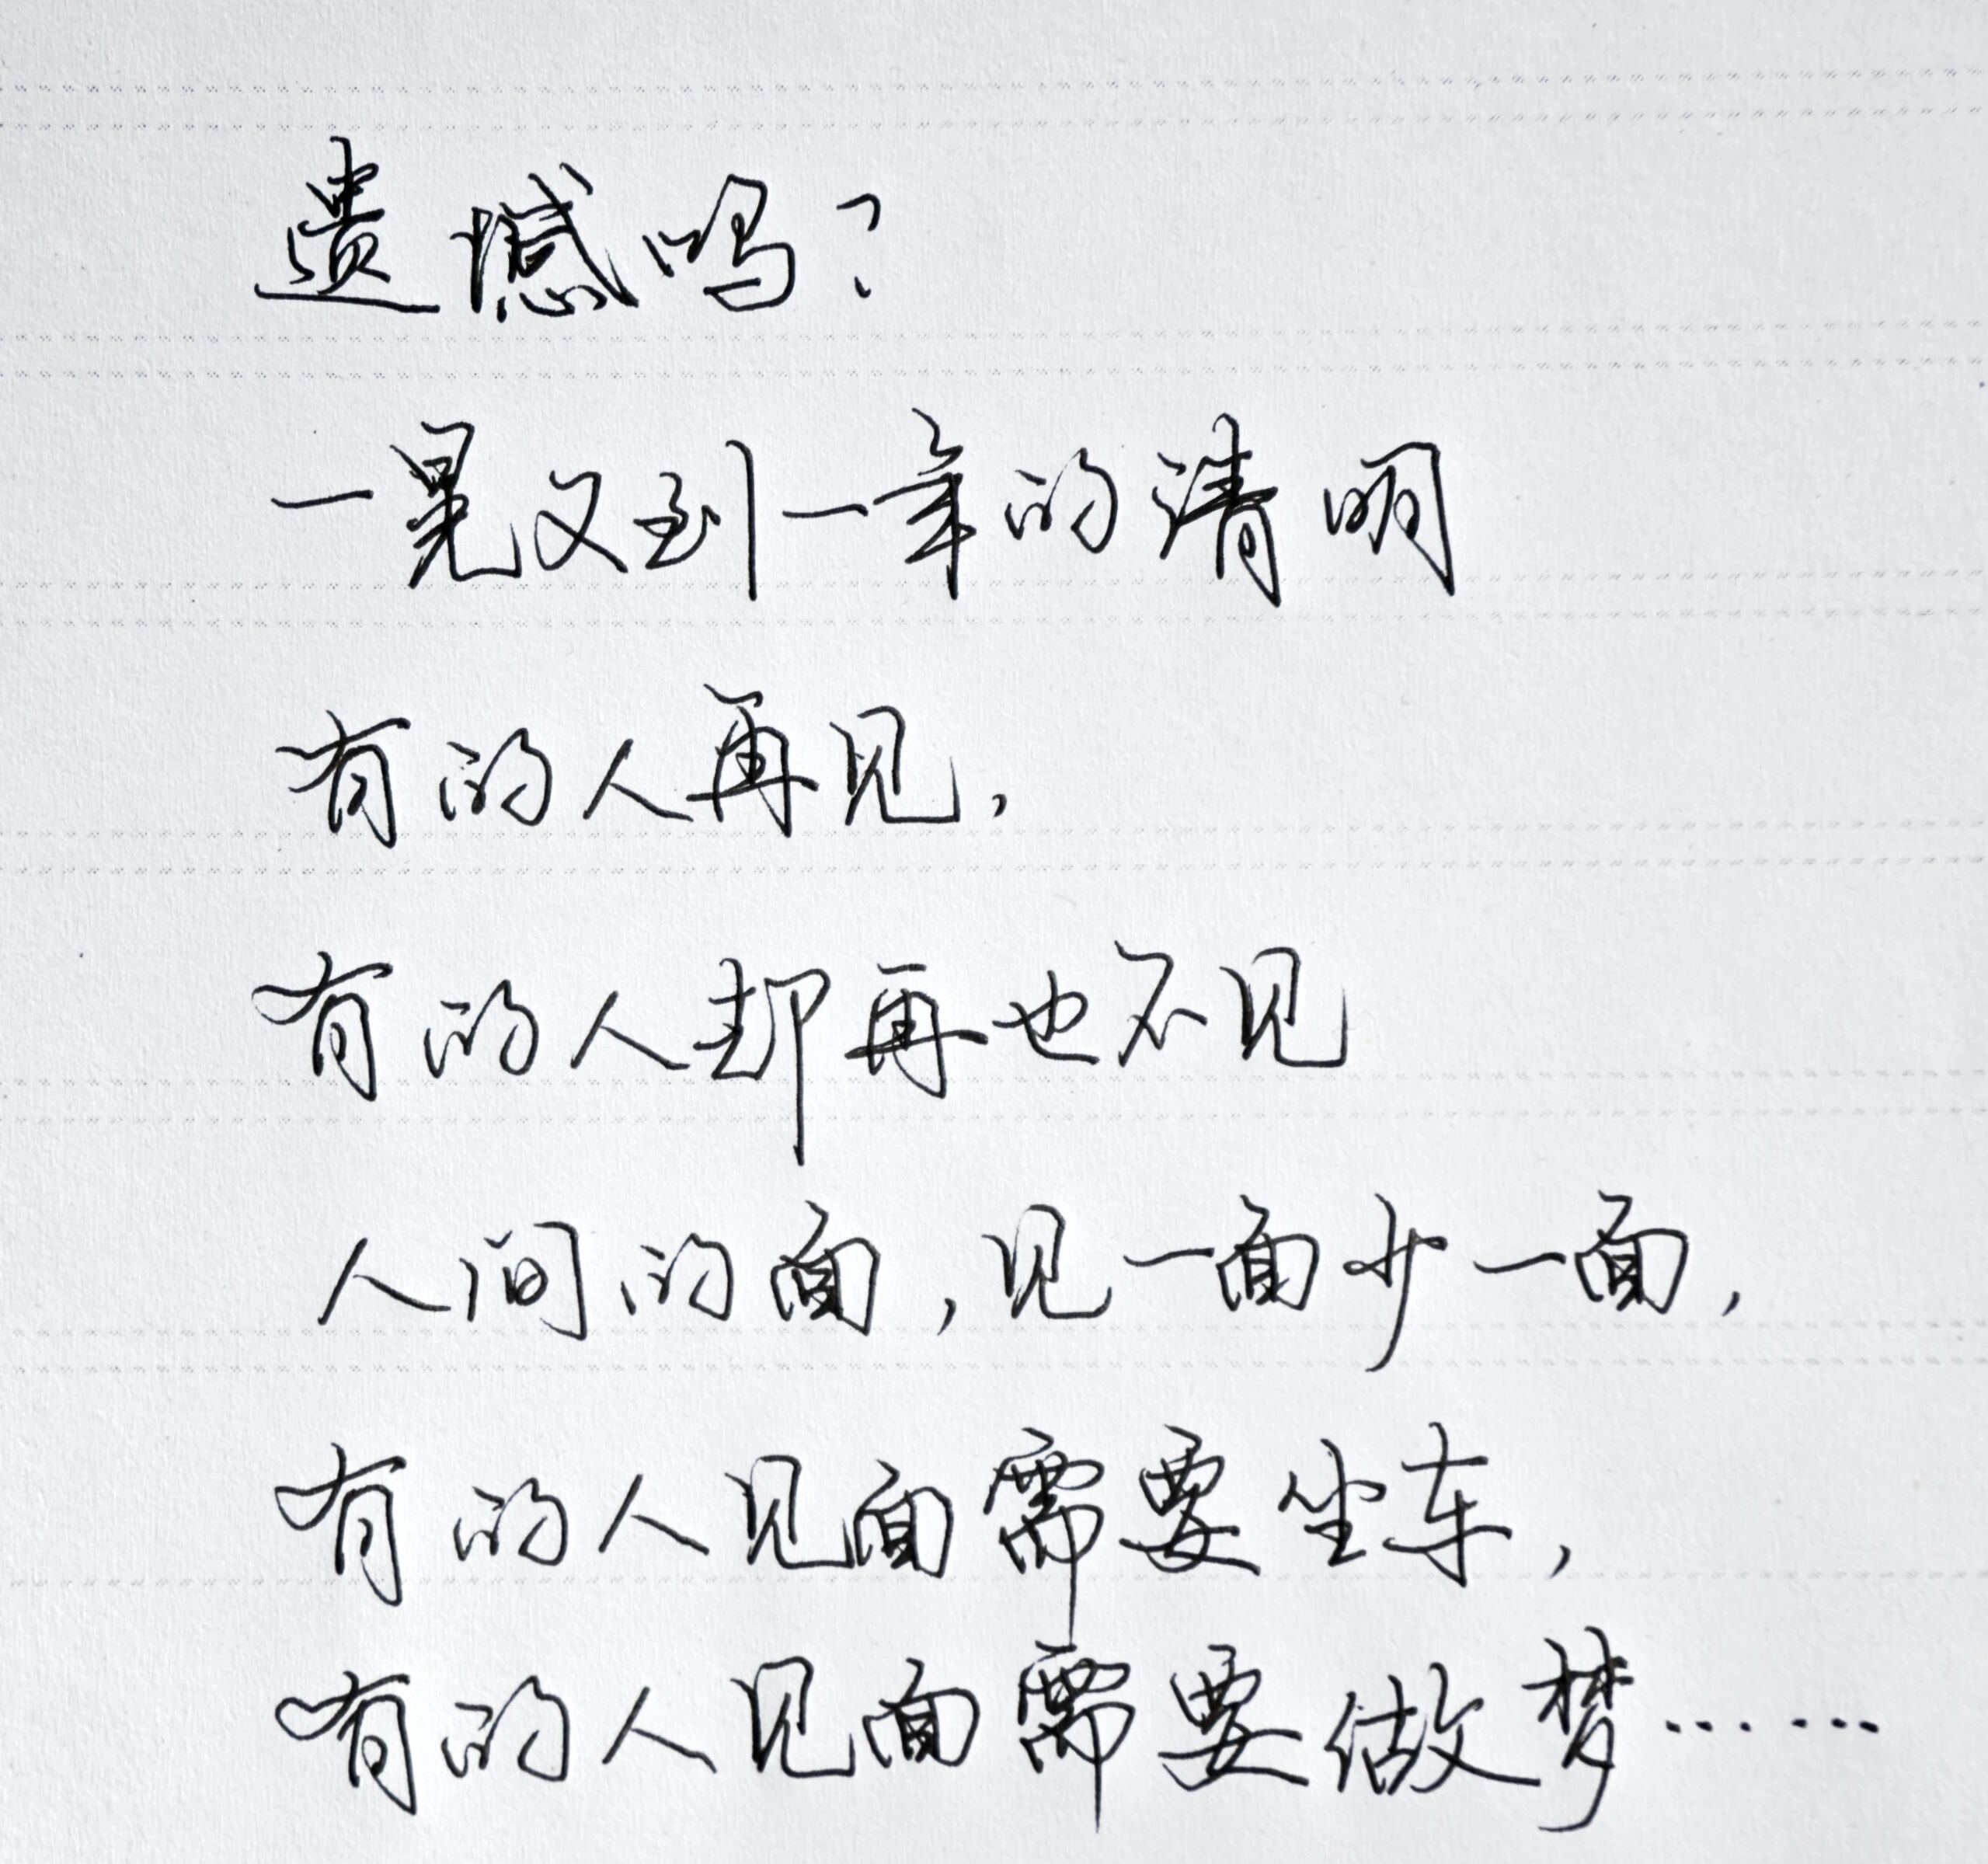 遗憾吗？
一晃又到一年的清明
有的人再见，
有的人却再也不见
人间的面，见一面少一面，
有的人见面需要坐车，
有的人见面需要做梦……